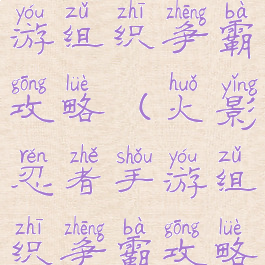 yóu zǔ zhī zhēng bà
游组织争霸
gōng lüè huǒ yǐng
攻略(火影
rěn zhě shǒu yóu zǔ
忍者手游组
zhī zhēng bà gōng lüè
织争霸攻略